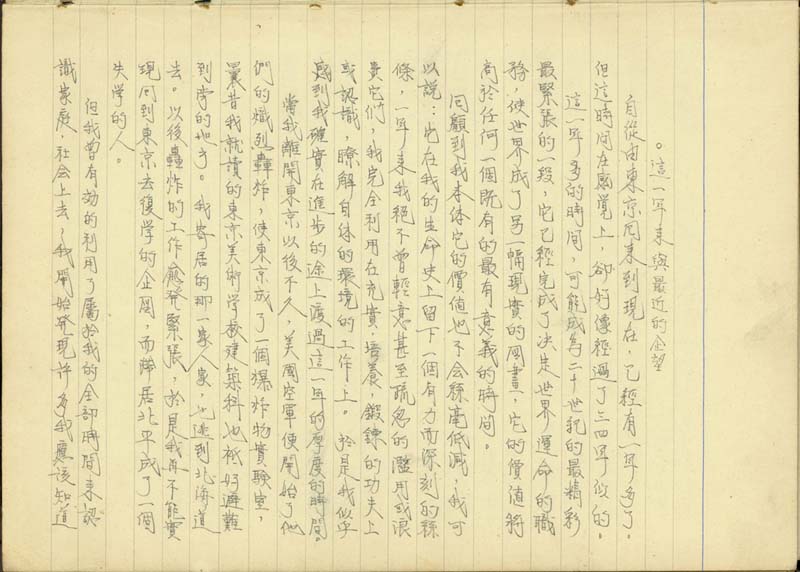 。這一年來與最近的企望
自從由東京回來到現在，已經有一年多了。
但這時間在感覺上，卻好像經過了三四年似的。
這一年多的時間，可能成為二十世紀的最精彩
最緊張的一段，它已經完成了決定世界運命的職
務，使世界成了另一幅現實的圖畫，它的價值將
高於任何一個既有的最有意義的時間。
回顧到我本体它的價值也不会絲毫低減，我可
以說：它在我的生命史上留下一個有力而深刻的
條，一年來我絕不曾輕意甚至疏忽的濫用或浪
費它們，我完全利用在充實，培養，鍛鍊的功夫上
或認識，瞭解自体的環境的工作上。於是我似乎
感到我確實在進步的途上渡過這一年的厚度的時間。
當我離開東京以後不久，美國空軍便開始了他
們的熾烈轟炸，使東京成了一個爆炸物實驗室，
曩昔我就讀的東京美術学校建築科也祇好避難
到旁的地方。我寄居的那一家人家，也逃到北海道
去。以後轟炸的工作愈發緊張，於是我再不能實
現回到東京去復学的企図，而滯居北平成了一個
失学的人。
但我曾有効的利用了屬於我的全部時間來認
識家庭，社会上去，我開始發現許多我應該知道